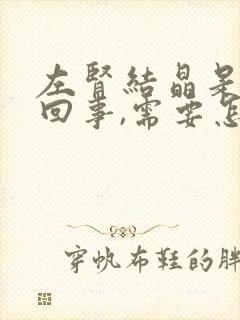 左腎結晶是
回事,需要怎
穿帆布鞋的胖